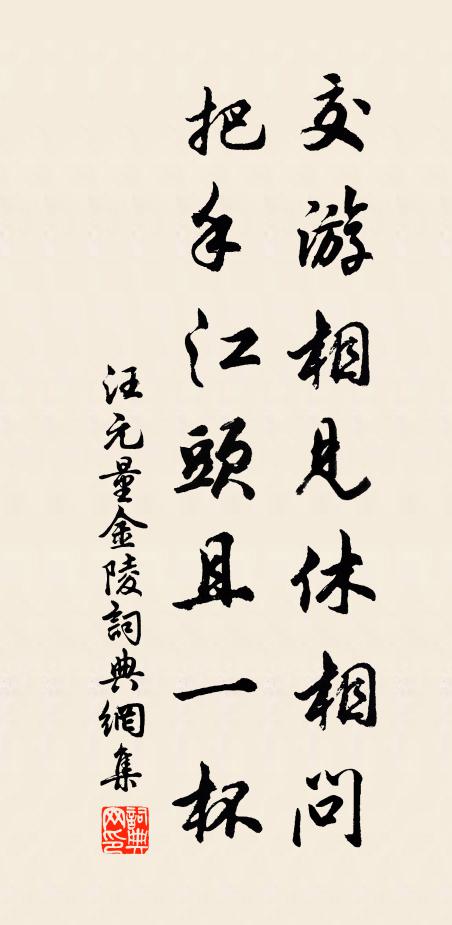 交游相見休相問
把手江頭且一杯
汪元量金陵詞典網集
詞典网印